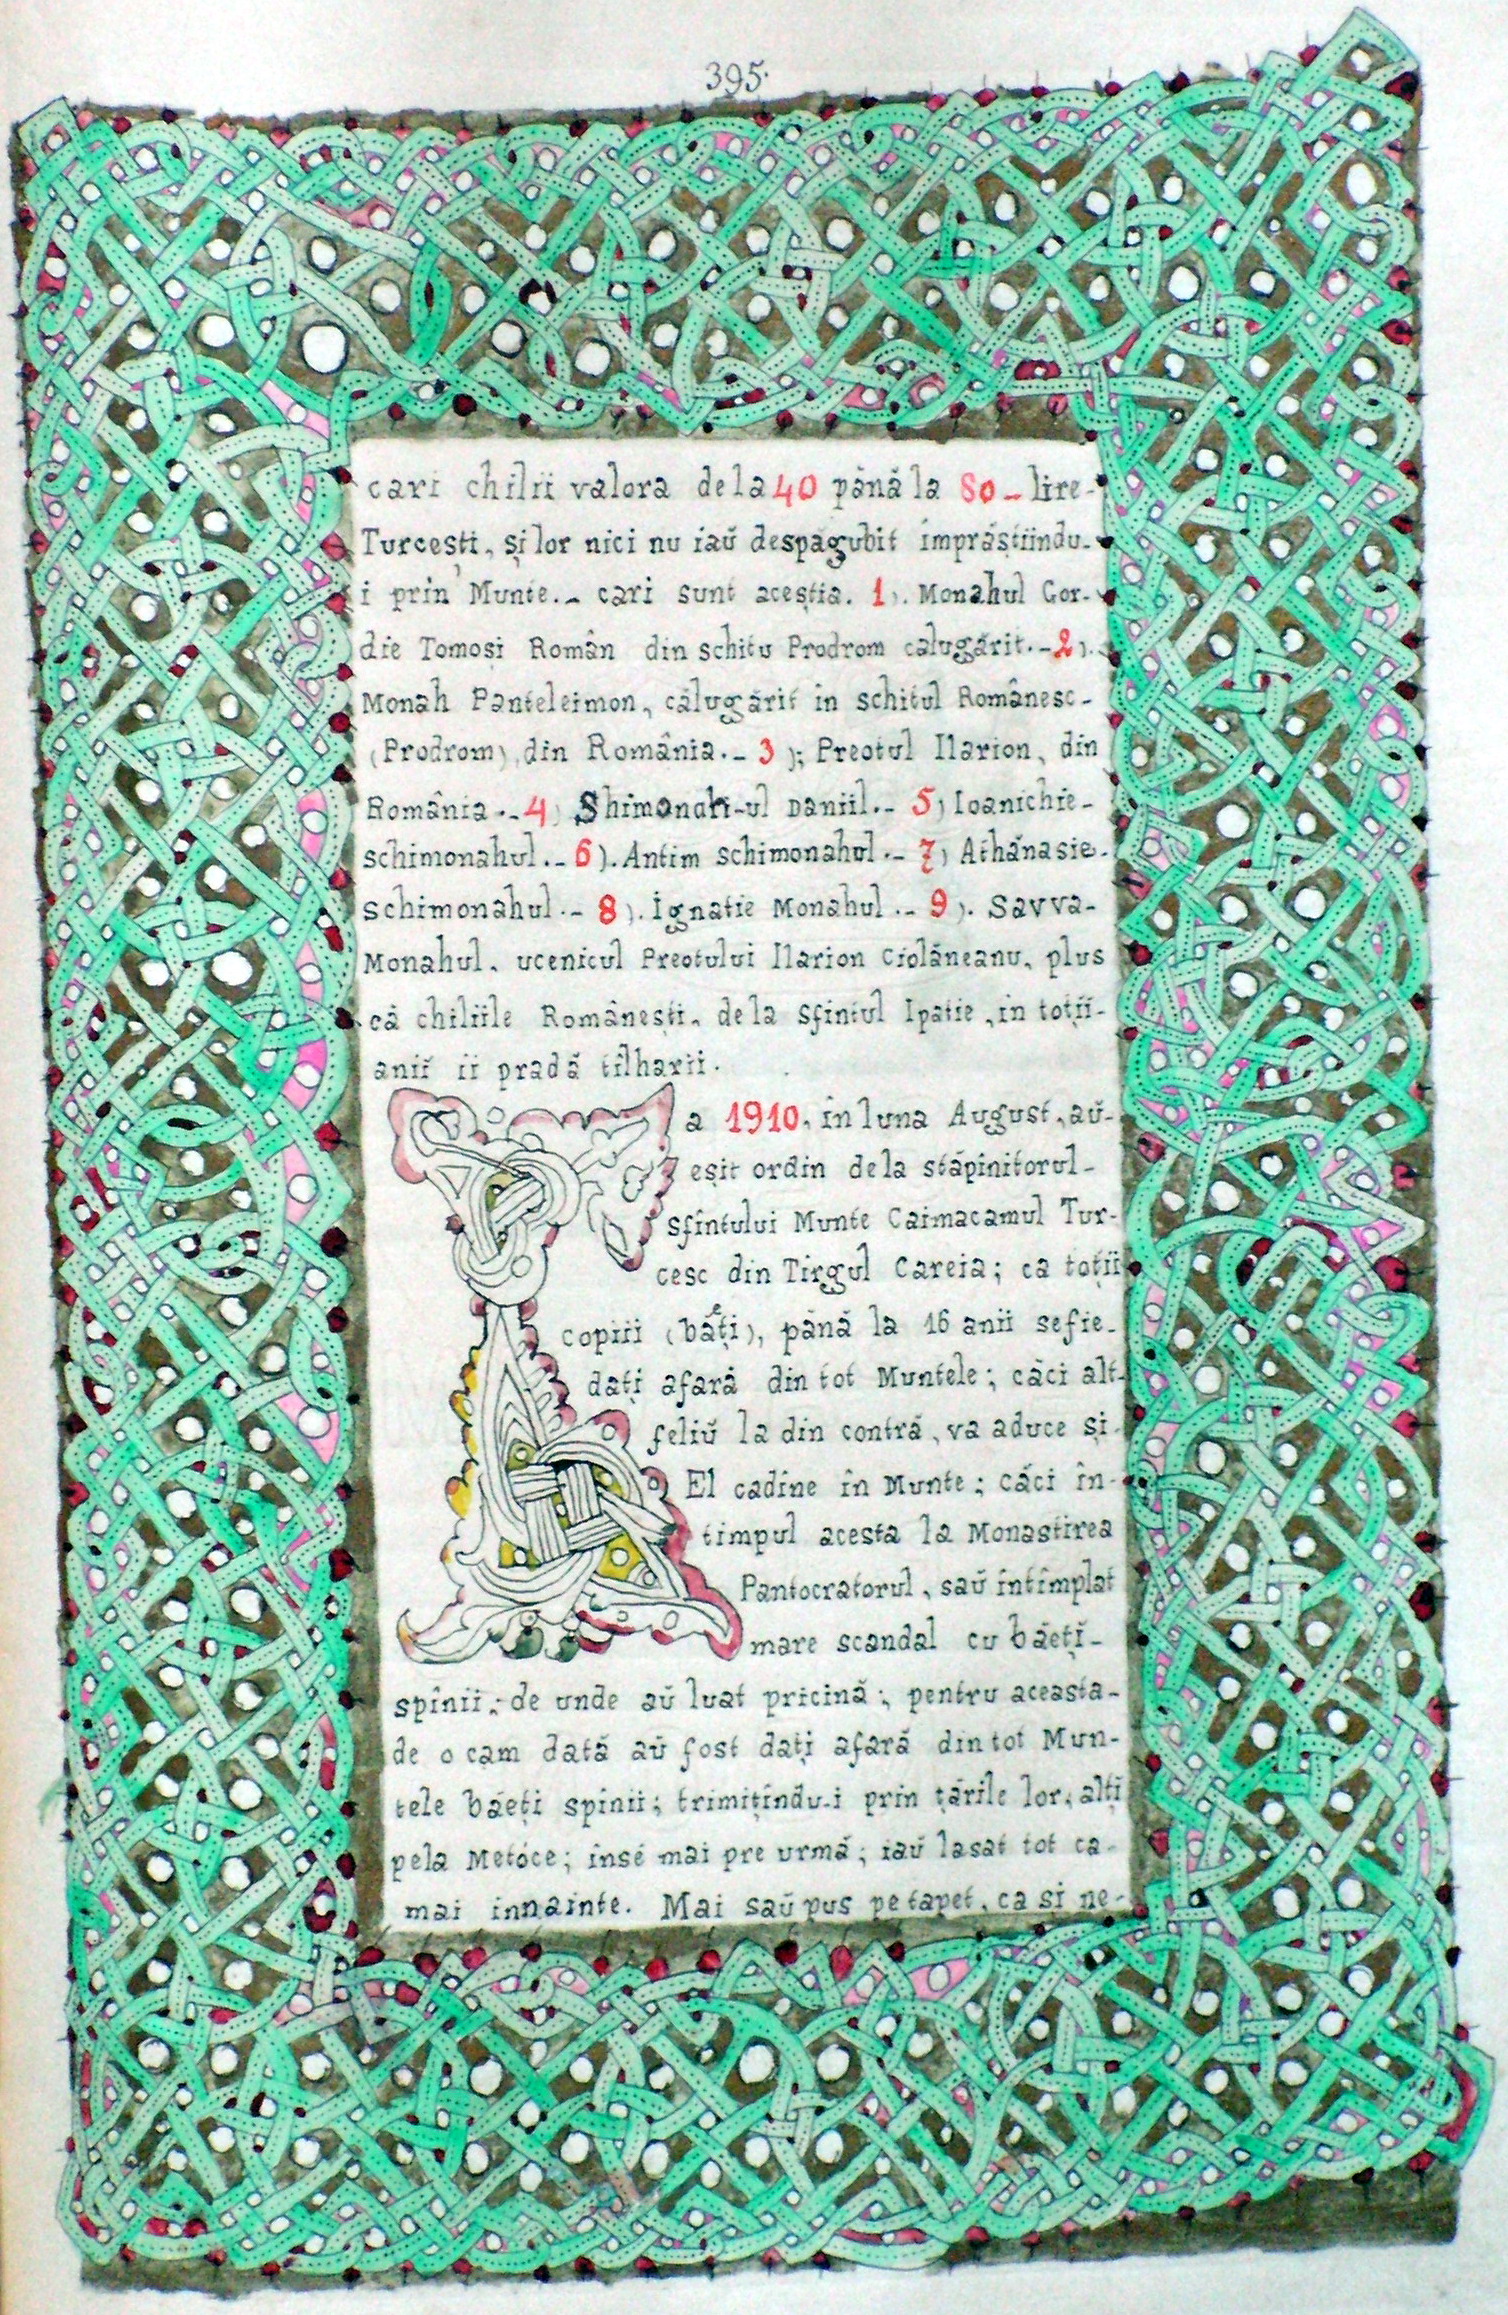 395.
cari chilii valora dela 40 până la 80 – lire-
Turcești, și lor nici nu iaŭ despăgubit împrăștiindu-
i prin Munte.– cari sunt aceștia. 1). Monahul Gor-
die Tomoși Român din schitu Prodrom calugărit.–2).
Monah Panteleimon, călugărit în schitul Românesc-
(Prodrom), din România.– 3); Preotul Ilarion, din
România.– 4) Shimonah-ul Daniil.– 5) Ioanichie-
schimonahul.– 6). Antim schimonahul.– 7) Athănasie-
schimonahul.– 8). Ignatie Monahul.– 9). Savva-
Monahul, ucenicul Preotului Ilarion Ciolăneanu, plus
că chiliile Românești, dela Sfintul Ipatie, in toții-
aniĭ ii pradă tîlharii.
La 1910, în luna August, aŭ-
eșit ordin dela stăpînitorul-
sfîntului Munte Caimacamul Tur-
cesc din Tirgul Careia; ca toții
copiii (băeți), până la 16 anii sefie-
dați afară din tot Muntele; căci alt-
feliŭ la din contră, va aduce și-
El cadîne în Munte; căci în-
timpul acesta la Monastirea
Pantocratorul, saŭ întîmplat
mare scandal cu băeți-
spînii; de unde aŭ luat pricină; pentru aceasta-
de o cam dată aŭ fost dați afară din tot Mun-
tele băeți spinii; trimițîndu-i prin țările lor, alți
pela Metóce; însé mai pre urmă; iaŭ lasat tot ca-
mai innainte. Mai saŭ pus pe tapet, ca si ne-